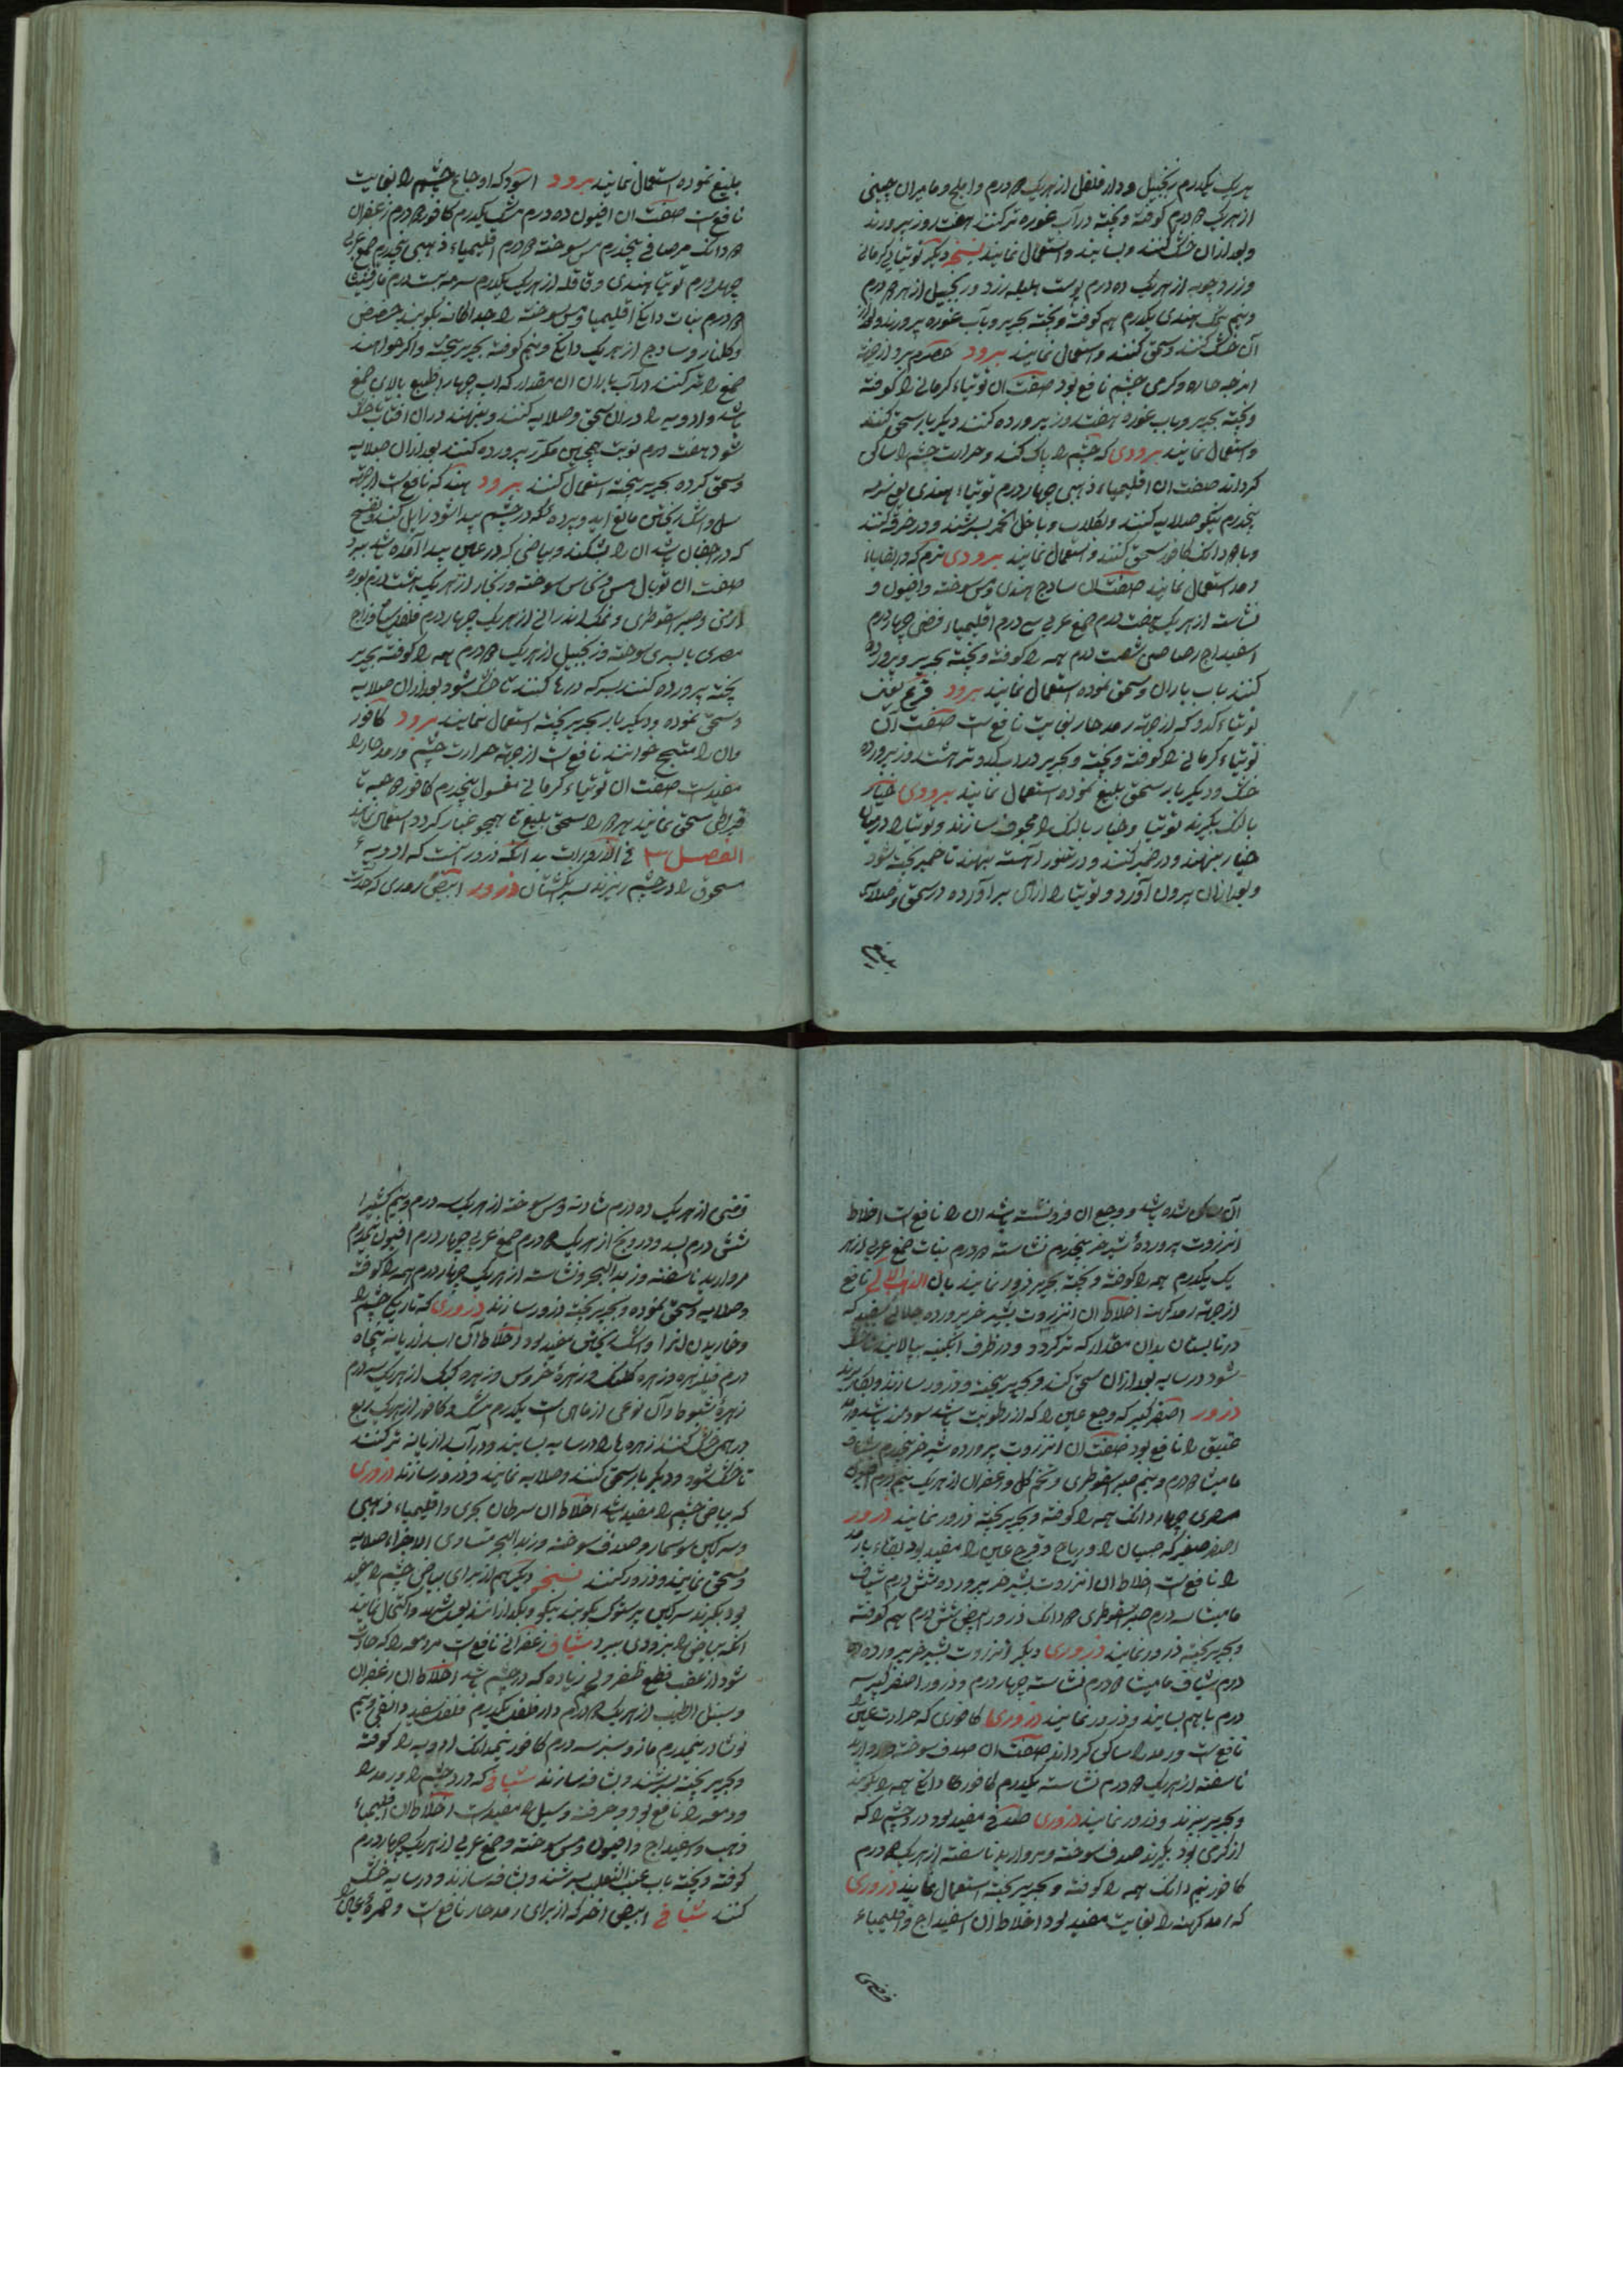 هریک یکدرم زنجبیل و دار فلفل از هریک درم و املج و مامیران چینی
از هریک درم کوفته و بیخته در آب غوره تر کنند هفت روز بپرورند
و بعد از ان خشک کنند و بسایند و استعمال نمایند نسخه دیگر توتیای کرمانی
و زردچوبه از هریک ده درم پوست هلیله زرد و زنجبیل از هر درم
و نیم نمک هندی یکدرم همه کوفته و بیخته بحریر و بآب غوره بپرورند و بعد از
آن خشک کنند و سحق کنند و استعمال نمایند برود حصرم برد از جهة
و کرمی چشم نافع بود صفت ان توتیاء کرمانی را کوفته
و بیخته بحریر و باب غوره هفت روز پرورده کنند دیکر بار سحق کنند
و استعمال نمایند برودی که چشم را پاک کند و حرارت چشم را ساکن
کرداند صفت ان اقلیمیاء ذهبی چهار درم توتیاء هندی
پنجدرم نیکو صلایه کنند و بکلاب و با خل الخمر بسرشند و در خرقه کنند
و با دانک کافور سحق کنند و استعمال نمایند برودی نرم که در انتهاء
رمد استعمال نمایند صفت ان سادج هندی و مس سوخته و افیون و
نشاسته از هریک هفت درم صمغ عربی سی درم اقلیمیاء فضی چهار درم
اسفیداج رصاصی شصت درم همه را کوفته و بیخته بحریر و پرورده
کنند باب باران و سحق نموده استعمال نمایند برود قرع یعنی
توتیاء کدو که از جهة رمد حار بغایت نافعست صفت آن
توتیاء کرمانی را کوفته و بیخته بحریر در آب کدو تر هشت روز پرورده
خشک و دیکر بار سحق بلیغ نموده استعمال نمایند برودی خیار
بالنک بکیرند توتیا و خیار بالنک را مجوف سازند و توتیا را در میان
خیار بنهند و در خمیر کنند و در تنور آهسته بنهند تا خمیر پخته شود
و بعد از ان بیرون آورد و توتیا را از آن برآورده در سحق و صلایه
بلیغ نموده استعمال نمایند برود اسود که اوجاع چشم را بغایت
نافعست صفت ان افیون ده درم مشک یکدرم کافور درم زعفران
دانک مرصافی پنجدرم مس سوخته درم اقلیمیاء ذهبی پنجدرم صمغ عربی
چهار درم توتیاء هندی و قاقله از هریک یکدرم سرمه بیست درم مارقشیثا
درم نبات دانک اقلیمیا و مس سوخته را جداکانه بکوبند حضض
و کلنار و سادج از هریک دانک و نیم کوفته بحریر بیخته و اکر خواهند
صمغ را تر کنند در آب باران ان مقدار که آب چهار اصابع بالای صمغ
باشد و ادویه را در ان سحق و صلایه کنند و بنهند در ان افتاب تا خشک
شود هفت درم نوبت همچنین مکرر پرورده کنند بعد از ان صلایه
و سحق کرده بحریر بیخته استعمال کنند برود هند که نافعست از جهة
سل و اشک ریختن مانع اید و پرده که در چشم پیدا شود زایل کند و نفخ
که در اجفان باشد ان را بشکند و بیاضی که در عین پیدا آمده باشد ببرد
صفت ان توبال مس و مس سوخته و زنکار از هریک هشت درم بوره
ارمنی و صبر اسقوطری و نمک اندرانی از هریک چهار درم فلفل و زاج
مصری یا بسدی سوخته و زنجبیل از هریک درم همه را کوفته بحریر
بیخته پرورده کنند بسرکه و رها کنند تا خشک شود بعد از ان صلایه
و سحق نموده و دیکر بار بحریر بیخته استعمال نمایند برود کافور
و ان را مثلج خوانند نافعست از جهة حرارت چشم و رمد حار را
مفیدست صفت ان توتیاء کرمانی مغسول پنجدرم کافور حبه تا
قیراطی سحق نمایند هر را سحق بلیغ تا همچو غبار کردد استعمال نمایند
الفصل ۳ فی الذرورات بدانکه ذرور انست که ادویهء
مسحوق را در چشم ریزند بسر انکشتان ذرور ابیض ذروری که حدت
آن ساکن شده باشد و وجع ان فرو نشسته باشد ان را نافعست اخلاط
انزروت پروردهٔ شیر خر پنجدرم نشاسته درم نبات صمغ عربی از هر
یک یکدرم همه را کوفته و بیخته بحریر ذرور نمایند نافع
از جهة رمد کهنه اخلاط ان انزروت بشیر خر پرورده
در تابستان بدان مقدار که تر کردد و در ظرف ابکینه بپالایند تا خشک
شود در سایه بعد از ان سحق کنند و بحریر بیخته و ذرور سازند و بکار برند
ذرور اصفر کبیر که وجع عین را که از رطوبت باشد سودمند باشد
عتیق را نافع بود صفت ان انزروت پرورده شیر خر پنجدرم شیاف
مامیثا درم و نیم صبر اسقوطری و تخم کل و زعفران از هریک نیم درم افیون
مصری چهار دانک همه را کوفته و بحریر بیخته ذرور نمایند ذرور
اصفر صغیر که صبیان را و ریاح و قرح عین را مفید بود بقاء رمد
را نافعست اخلاط ان انزروت بشیر خر پرورده شش درم شیاف
مامیثا سه درم صبر اسقوطری دانک ذرور ابیض شش درم همه کوفته
و بحریر بیخته ذرور نمایند ذروری دیکر انزروت بشیر خر پرورده
درم شیاف مامیثا درم نشاسته چهار درم و ذرور اصفر کبیر سه
درم باهم بسایند و ذرور نمایند ذروری کافوری که حرارت عین را
نافعست و رمد را ساکن کرداند صفت ان صدف سوخته و مروارید
ناسفته از هریک درم نشاسته یکدرم کافور دانک همه را بکوبند
و بحریر ببیزند و ذرور نمایند ذروری صدفی مفید بود درد چشم را که
از کرمی بود بکیرند صدف سوخته و مروارید ناسفته از هریک درم
کافور نیم دانک همه را کوفته و بحریر بیخته استعمال نمایند ذروری
که رمد کهنه را بغایت مفید بود اخلاط ان اسفیداج و اقلیمیاء
فضی
فضی از هریک ده درم شادنه و مس سوخته از هریک سه درم و نیم کثیرا
شش درم بسد و دروبخ از هریک درم صمغ عربی چهار درم افیون نیمدرم
مروارید ناسفته و زبد البحر و نشاسته از هریک چهار درم همه را کوفته
و صلایه و سحق نموده و بحریر بیخته ذرور سازند ذروری که تاریکی چشم را
و خاریدن انرا و اشک ریختن مفید بود اخلاط آن اب رازیانه پنجاه
درم فیلزهره و زهره کلنک و زهرهٔ خروس و زهره کبک از هریک سه درم
زهرهٔ شبوط و آن نوعی از ماهی است یکدرم مشک و کافور از هریک ربع
درهمی خشک کنند زهره ها را در سایه بسایند و در آب رازیانه تر کنند
تا خشک شود و دیکر بار سحق کنند و صلایه نمایند و ذرور سازند ذروری
که بیاض چشم را مفید باشد اخلاط ان سرطان بحری و اقلیمیاء ذهبی
و سرکین سوسمار و صدف سوخته و زبد البحر متساوی الاجزاء صلایه
و سحق نمایند و ذرور کنند نسخهٔ دیکر هم از برای بیاض چشم را مفید
بود بکیرند سرکین پرستوک بکوبند نیکو و بکدازانند بشهد و اکتحال نمایند
انکه بیاض را بزودی ببرد شیاف زعفرانی نافعست مر دمعه را که حادث
شود از عقب قطع ظفره و لحم زیاده که در چشم باشد اخلاط ان زعفران
و سنبل الطیب از هریک درم دار فلفل یکدرم فلفل سفید دانقی و نیم
نوشادر نیمدرم مازو سبز سه درم کافور نیمدانک ادویه را کوفته
و بحریر بیخته بسرشند و شافه سازند شیافی که درد چشم را و رمد را
و دمعه را نافع بود و حرقة و سبل را مفیدست اخلاط ان اقلیمیاء
ذهب و اسفیداج و افیون و مس سوخته و صمغ عربی از هریک چهار درم
کوفته و بیخته باب عنب الثعلب بسرشند و شافه سازند و در سایه خشک
کنند شیافی ابیض اخر که از برای رمد حار نافعست و حمرهٔ عین را